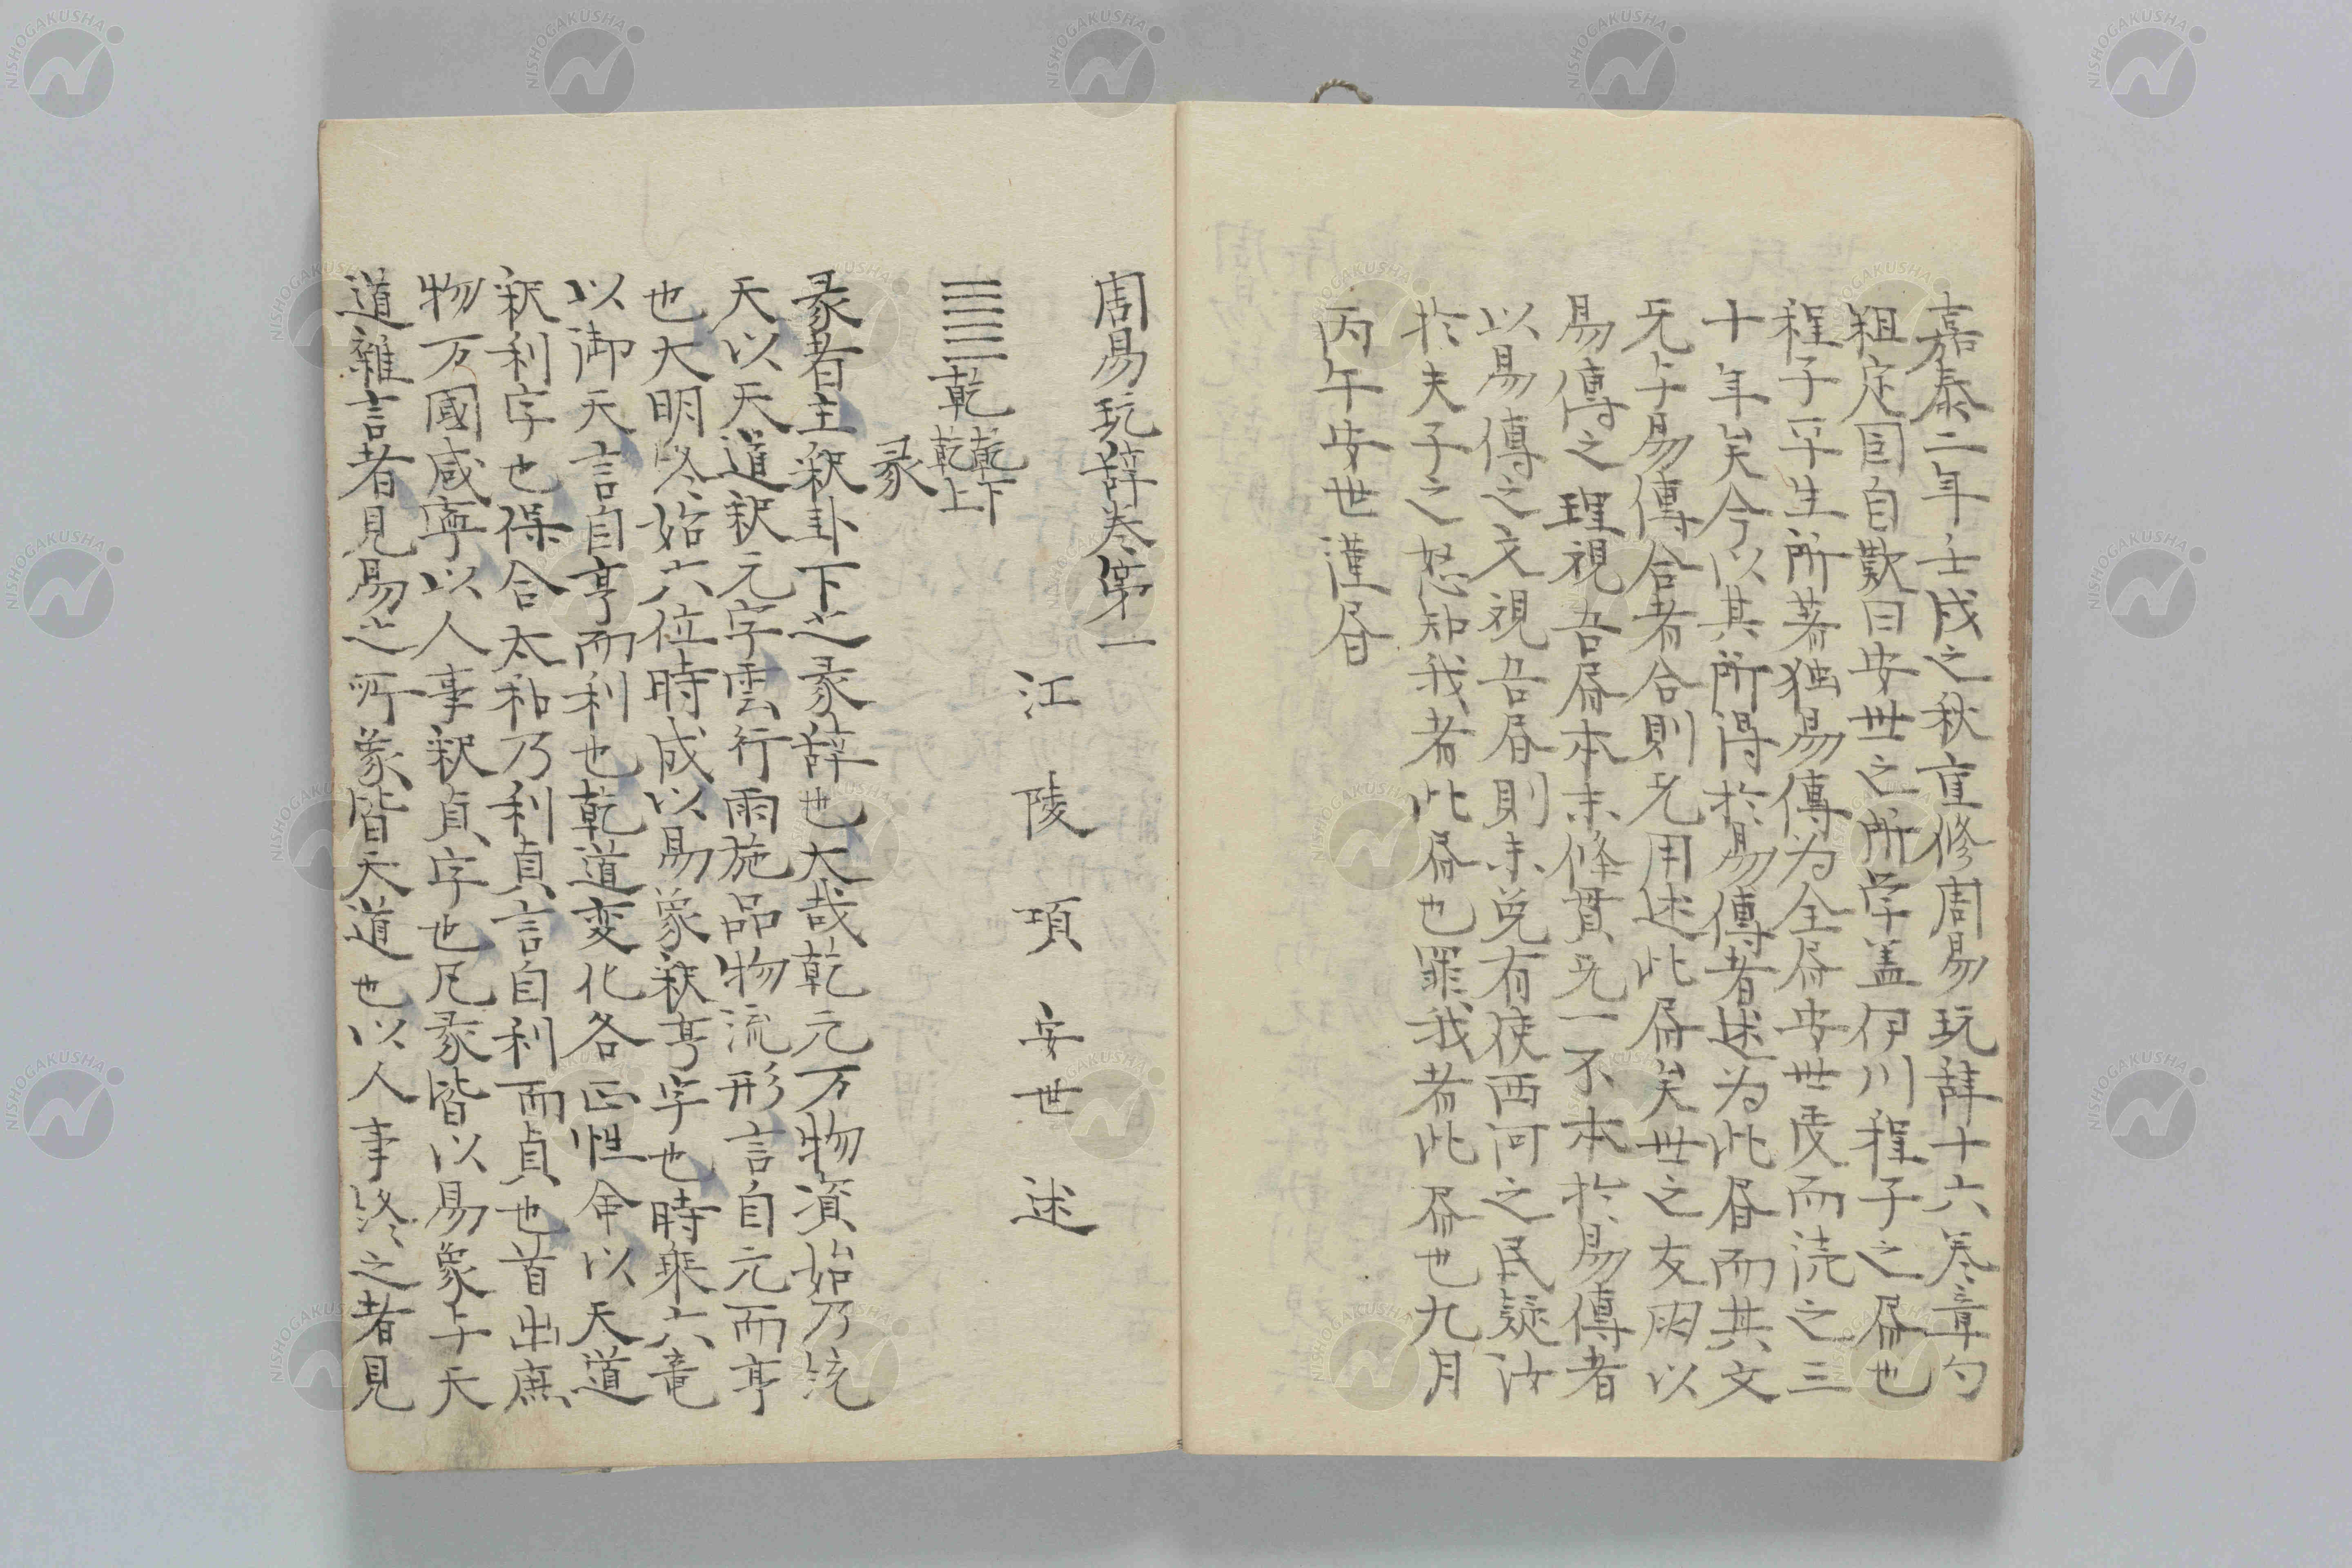 嘉泰二年壬戌之秋重修周易玩辞十六巻章句
粗定囙自歎曰安世之所学盖伊川程子之㫺也
程子平生所著独易傳为全㫺安世受而读之三
十年矣今以其所得扵易傳者述为此㫺而其文
无与易傳合者合則无用述此㫺矣世之友朋以
易傳之理視吾㫺本末條貫无一不本扵易傳者
以易傳之文視吾㫺則未免有使西河之民疑汝
扵夫子之怒知我者此㫺也罪我者此㫺也九月
丙午安世謹㫺
周易玩辞巻第一
江陵項安世述
䷀乾 乾下 乾上
彖
彖者主釈卦下之彖辞也大哉乾元万物資始乃统
天以天道釈元字雲行雨施品物流形言自元而亨
也大明终始六位時成以易象釈亨字也時乗六竜
以御天言自亨而利也乾道変化各正性命以天道
釈利字也保合太和乃利貞言自利而貞也首出庶
物万國咸寧以人事釈貞字也凡彖皆以易象与天
道雜言者見易之所象皆天道也以人事终之者見
NISHOGAKUSHA